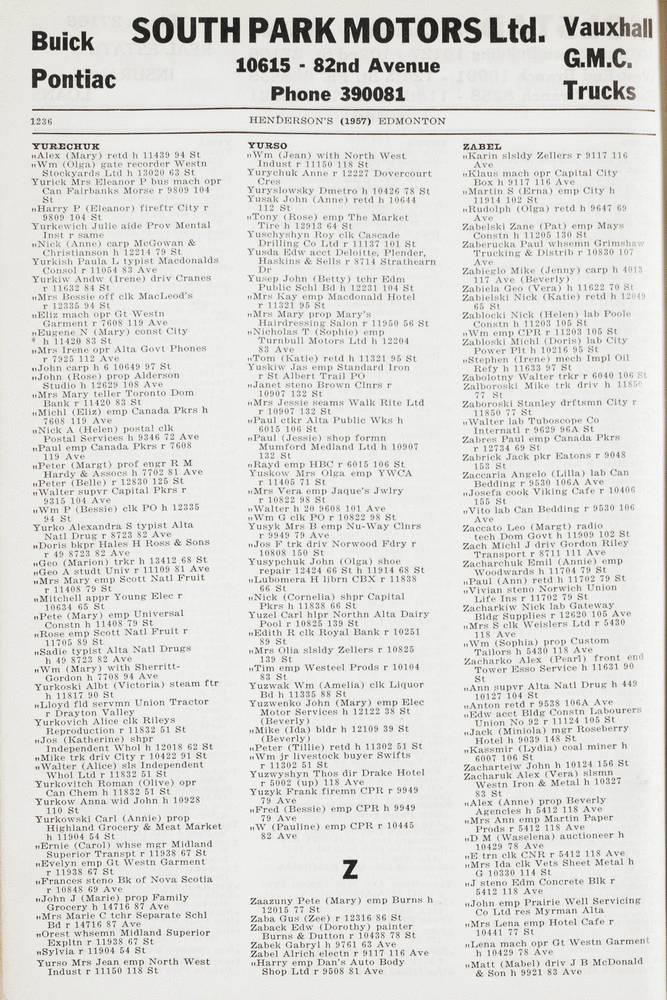 Buick
Pontiac
SOUTH PARK MOTORS Ltd.
10615 - 82nd Avenue
Phone 390081
Vauxhall
G.M.C.
Trucks
1236
HENDERSON'S (1957) EDMONTON
YURECHUK
"Alex (Mary) retd h 11439 94 St
"Wm (Olga) gate recorder Westn
Stockyards Ltd h 13020 63 St
Yurick Mrs Eleanor P bus mach opr
Can Fairbanks Morse r 9809 104
St
"Harry P (Eleanor) fireftr City r
9809 104 St
Yurkewich Julie aide Prov Mental
Inst r same
"Nick (Anne) carp McGowan &
Christianson h 12214 79 St
Yurkish Paula L typist Macdonalds
Consol r 11054 83 Ave
Yurkiw Andw (Irene) driv Cranes
r 11632 84 St
"Mrs Bessie off clk MacLeod's
r 12335 94 St
"Eliz mach opr Gt Westn
Garment r 7608 119 Ave
"Eugene N (Mary) const City
* h 11420 83 St
"Mrs Irene opr Alta Govt Phones
r 7925 112 Ave
"John carp h 6 10649 97 St
"John (Rose) prop Alderson
Studio h 12629 108 Ave
"Mrs Mary teller Toronto Dom
Bank r 11420 83 St
"Michl (Eliz) emp Canada Pkrs h
7608 119 Ave
"Nick A (Helen) postal clk
Postal Services h 9346 72 Ave
"Paul emp Canada Pkrs r 7608
119 Ave
"Peter (Margt) prof engr R M
Hardy & Assocs h 7702 81 Ave
"Peter (Belle) r 12830 125 St
"Walter supvr Capital Pkrs r
9315 104 Ave
"Wm P (Bessie) clk PO h 12335
94 St
Yurko Alexandra S typist Alta
Natl Drug r 8723 82 Ave
"Doris bkpr Hales H Ross & Sons
r 49 8723 82 Ave
"Geo (Marion) trkr h 13412 68 St
"Geo A studt Univ r 11109 81 Ave
"Mrs Mary emp Scott Natl Fruit
r 11408 79 St
"Mitchell appr Young Elec r
10634 65 St
"Pete (Mary) emp Universal
Constn h 11408 79 St
"Rose emp Scott Natl Fruit r
11705 89 St
"Sadie typist Alta Natl Drugs
h 49 8723 82 Ave
"Wm (Mary) with Sherritt-
Gordon h 7708 94 Ave
Yurkoski Albt (Victoria) steam ftr
h 11817 90 St
"Lloyd fld servmn Union Tractor
r Drayton Valley
Yurkovich Alice clk Rileys
Reproduction r 11832 51 St
"Jos (Katherine) shpr
Independent Whol h 12018 62 St
"Mike trk driv City r 10422 91 St
"Walter (Alice) sls Independent
Whol Ltd r 11832 51 St
Yurkovitch Roman (Olive) opr
Can Chem h 11832 51 St
Yurkow Anna wid John h 10928
110 St
Yurkowski Carl (Annie) prop
Highland Grocery & Meat Market
h 11904 54 St
"Ernie (Carol) whse mgr Midland
Superior Transpt r 11938 67 St
"Evelyn emp Gt Westn Garment
r 11938 67 St
"Frances steno Bk of Nova Scotia
r 10848 69 Ave
"John J (Marie) prop Family
Grocery h 14716 87 Ave
"Mrs Marie C tchr Separate Schl
Bd r 14716 87 Av
"Orest whsemn Midland Superior
Expltn r 11938 67 St
"Sylvia r 11904 54 St
Yurso Mrs Jean emp North West
Indust r 11150 118 St
YURSO
"Wm (Jean) with North West
Indust r 11150 118 St
Yurychuk Anne r 12227 Dovercourt
Cres
Yuryslowsky Dmetro h 10426 78 St
Yusak John (Anne) retd h 10644
112 St
"Tony (Rose) emp The Market
Tire h 12913 64 St
Yuschyshyn Roy clk Cascade
Drilling Co Ltd r 11137 101 St
Yusda Edw acct Deloitte, Plender,
Haskins & Sells r 8714 Strathearn
Dr
Yusep John (Betty) tchr Edm
Public Schl Bd h 12231 104 St
"Mrs Kay emp Macdonald Hotel
r 11321 95 St
"Mrs Mary prop Mary's
Hairdressing Salon r 11950 56 St
"Nicholas T (Sophie) emp
Turnbull Motors Ltd h 12204
83 Ave
"Tom (Katie) retd h 11321 95 St
Yuskiw Jas emp Standard Iron
r St Albert Trail PO
"Janet steno Brown Clnrs r
10907 132 St
"Mrs Jessie seams Walk Rite Ltd
r 10907 132 St
"Paul ctkr Alta Public Wks h
6015 106 St
"Paul (Jessie) shop formn
Mumford Medland Ltd h 10907
132 St
"Rayd emp HBC r 6015 106 St
Yuskow Mrs Olga emp YWCA
r 11405 71 St
"Mrs Vera emp Jaque's Jwlry
r 10822 98 St
"Walter h 20 9608 101 Ave
"Wm G clk PO r 10822 98 St
Yusyk Mrs B emp Nu-Way Clnrs
r 9949 79 Ave
"Jos F trk driv Norwood Fdry r
10808 150 St
Yusypchuk John (Olga) shoe
repair 12424 66 St h 11914 68 St
"Lubomera H librn CBX r 11838
66 St
"Nick (Cornelia) shpr Capital
Pkrs h 11838 66 St
Yuzel Carl hlpr Northn Alta Dairy
Pool r 10825 139 St
"Edith R clk Royal Bank r 10251
89 St
"Mrs Olia slsldy Zellers r 10825
139 St
"Tim emp Westeel Prods r 10104
83 St
Yuzwak Wm (Amelia) clk Liquor
Bd h 11335 88 St
Yuzwenko John (Mary) emp Elec
Motor Services h 12122 38 St
(Beverly)
"Mike (Ida) bldr h 12109 39 St
(Beverly)
"Peter (Tillie) retd h 11302 51 St
"Wm jr livestock buyer Swifts
r 11302 51 St
Yuzwyshyn Thos dir Drake Hotel
r 5002 (up) 118 Ave
Yuzyk Frank firemn CPR r 9949
79 Ave
"Fred (Bessie) emp CPR h 9949
79 Ave
"W (Pauline) emp CPR r 10445
82 Ave
Z
Zaazuny Pete (Mary) emp Burns h
12015 77 St
Zaba Gus (Zee) r 12316 86 St
Zaback Edw (Dorothy) painter
Burns & Dutton r 10438 78 St
Zabek Gabryl h 9761 63 Ave
Zabel Alrich electn r 9117 116 Ave
"Harry emp Dan's Auto Body
Shop Ltd r 9508 81 Ave
ZABEL
"Karin slsldy Zellers r 9117 116
Ave
"Klaus mach opr Capital City
Box h 9117 116 Ave
"Martin S (Erna) emp City h
11914 102 St
"Rudolph (Olga) retd h 9647 69
Av
Zabelski Zane (Pat) emp Mays
Constn h 11205 130 St
Zaberucka Paul whsemn Grimshaw
Trucking & Distrib r 10830 107
Ave
Zabieglo Mike (Jenny) carp h 4013
117 Ave (Beverly)
Zabiela Geo (Vera) h 11622 70 St
Zabielski Nick (Katie) retd h 12049
65 St
Zablocki Nick (Helen) lab Poole
Constn h 11203 105 St
"Wm emp CPR r 11203 105 St
Zabloski Michl (Doris) lab City
Power Plt h 10216 95 St
"Stephen (Irene) mech Impl Oil
Refy h 11633 97 St
Zabolotny Walter trkr r 6040 106 St
Zalboroski Mike trk driv h 11850
77 St
Zaboroski Stanley drftsmn City r
11850 77 St
"Walter lab Tuboscope Co
Internatl r 9629 96A St
Zabres Paul emp Canada Pkrs
r 12734 69 St
Zabrick Jack pkr Eatons r 9048
153 St
Zaccaria Angelo (Lilla) lab Can
Bedding r 9530 106A Ave
"Josefa cook Viking Cafe r 10406
155 St
"Vito lab Can Bedding r 9530 106
Ave
Zaccato Leo (Margt) radio
tech Dom Govt h 11909 102 St
Zach Michl J driv Gordon Riley
Transport r 8711 111 Ave
Zacharchuk Emil (Annie) emp
Woodwards h 11704 79 St
"Paul (Ann) retd h 11702 79 St
"Vivian steno Norwich Union
Life Ins r 11702 79 St
Zacharkiw Nick lab Gateway
Bldg Supplies r 12620 105 Ave
"Mrs S clk Weislers Ltd r 5430
118 Ave
"Wm (Sophia) prop Custom
Tailors h 5430 118 Ave
Zacharko Alex (Pearl) front end
Tower Esso Service h 11631 90
St
"Ann supvr Alta Natl Drug h 449
10127 104 St
"Anton retd r 9538 106A Ave
"Edw acct Bldg Constn Labourers
Union No 92 r 11124 105 St
"Jack (Miniola) mgr Roseberry
Hotel h 9039 148 St
"Kassmir (Lydia) coal miner h
6007 106 St
Zacharteiw John h 10124 156 St
Zacharuk Alex (Vera) slsmn
Westn Iron & Metal h 10327
83 St
"Alex (Anne) prop Beverly
Agencies h 5412 118 Ave
"Mrs Ann emp Martin Paper
Prods r 5412 118 Ave
"D M (Waselena) auctioneer h
10429 78 Ave
"E trn clk CNR r 5412 118 Ave
"Mrs Ida clk Vets Sheet Metal h
G 10330 114 St
"J steno Edm Concrete Blk r
5412 118 Ave
"John emp Prairie Well Servicing
Co Ltd res Myrman Alta
"Mrs Lena emp Hotel Cafe r
10441 77 St
"Lena mach opr Gt Westn Garment
h 10429 78 Ave
"Matt (Mabel) driv J B McDonald
& Son h 9921 83 Ave